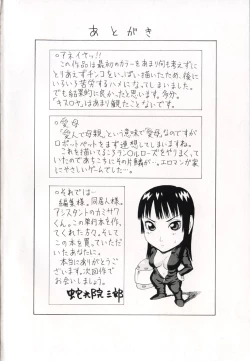 あとがき
○アネイヤッ!!
この作品は最初のカラーをあまり何も考えずに
とりあえずチンコをいっぱい描いたため、後に
いろいろ苦労するハメになってしまいました。
でも結果的に良かったと思います。多分。
「キスロヤ」はあまり観たことないです。
○愛母
「愛人で母親」という意味で「愛母」なのですが
ロボットペットをまず連想してしまいますね。
これを描いてる
ていたのであちこちにその片鱗が…。エロマンガ家
にやさしいゲームでした…。
○それでは…
編集様。同居人様。
アシスタントのカミサワ
くん。この単行本を作っ
てくれた方々。そして
この本を買っていただ
いたあなたに。
本当にありがとうご
ざいます。次回作で
お会いしましょう。